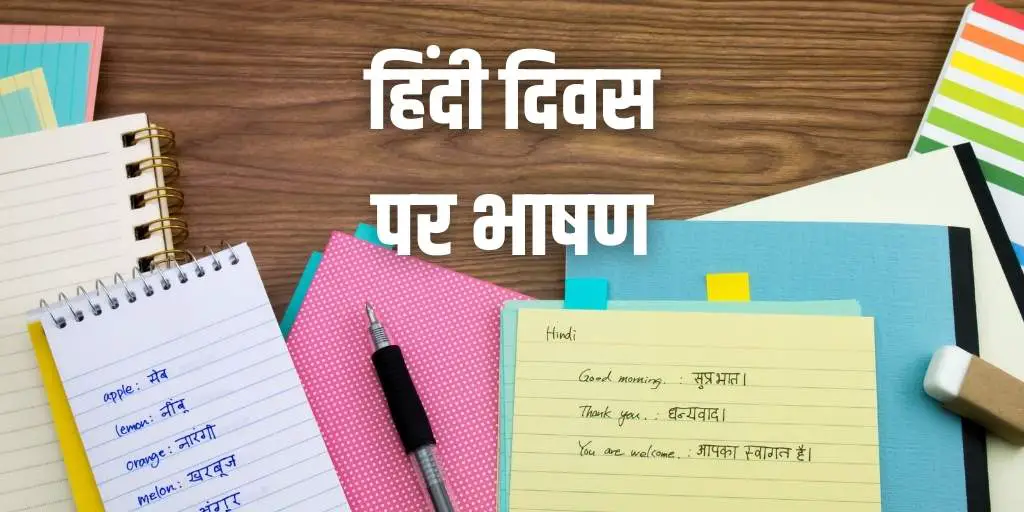 हिंदी दिवस
पर भाषण
apple: सेब
lemon: नींबू
orange: नारंगी
melon: खरबूज
अंगूर
Hindi
Good morning. : सुप्रभात।
Thank you. : धन्यवाद।
You are welcome. : आपका स्वागत है।